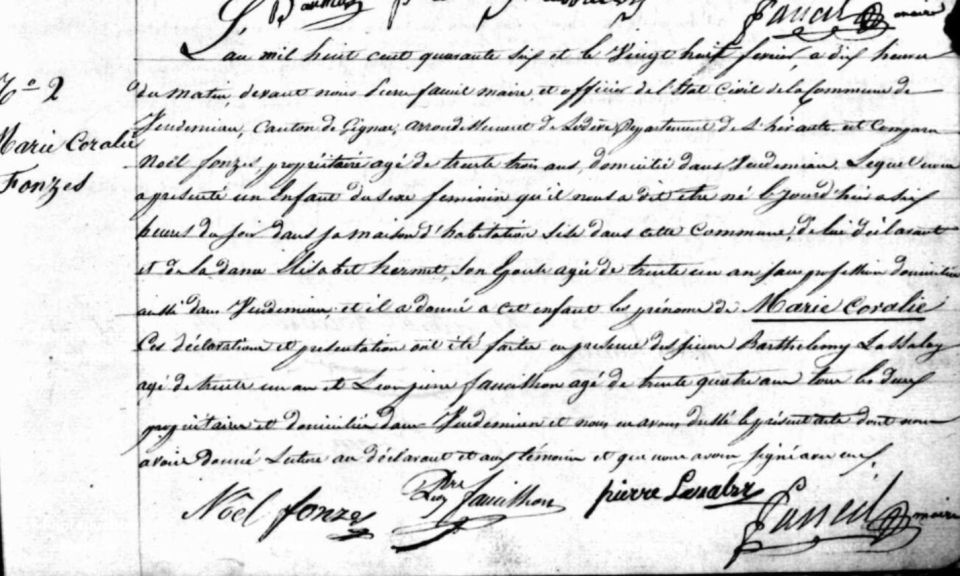 maire
L'an mil huit cent quarante six et le Vingt huit fevrier, a dix heures
N° 2
du matin, devant nous Pierre fauiil maire et officier de l'Etat Civil de la Commune de
Vendemian, Canton de Gignac, arrondissement de Lodève, Departement de l'hérault, est Comparu
Marie Coralie
Noël fonzes, propriétaire agé de trente trois ans, domicilié dans Vendemian. Lequel nous
Fonzes
a présenté un Enfant du sexe feminin qu'il nous a dit etre né le jourd'huis a six
heures du soir dans sa maison d'habitation sise dans cette Commune, de lui déclarant
et de la dame Elisabet hermet, son Epouse agée de trente un an sans profession domiciliée
aussi dans Vendemian et il a donné a cet enfant les prénoms de Marie Coralie
Ces déclaration et présentation ont été faites en presence des pierre Barthelemy Lassalvy
agé de trente un an et Leon pierre fauilhon agé de trente quatre ans tous les deux
propriétaires et domiciliés dans Vendemian et nous en avons dressé le présent acte dont nous
avons donné Lecture au déclarant et aux témoins et que nous avons signé avec eux.
Noël fonzes
fauilhon
pierre Lassalvy
maire